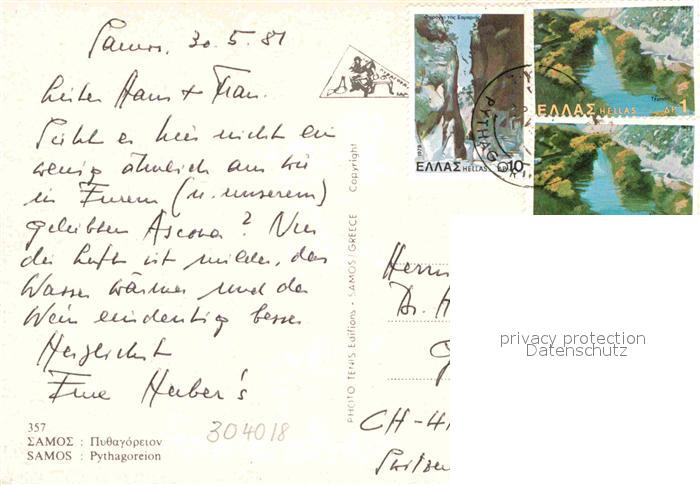 Samos, 30.5.81
Lieber Hans + Frau.
Sieht es hier nicht ein
wenig ähnlich aus wie
in Eurem (u. unserem)
geliebten Ascona? Nur
die Luft ist milder, das
Wasser wärmer und der
Wein eindeutig besser
Herzlichst
Eure Huber's
357
ΣΑΜΟΣ : Πυθαγόρειον
SAMOS : Pythagoreion
304018
PHOTO TENIS Editions - SAMOS/GREECE Copyright
1979
ΕΛΛΑΣ HELLAS ΔΡ 10
ΕΛΛΑΣ HELLAS ΔΡ 1
PYTHAG
Herrn
Dr. H
CH-41
privacy protection
Datenschutz